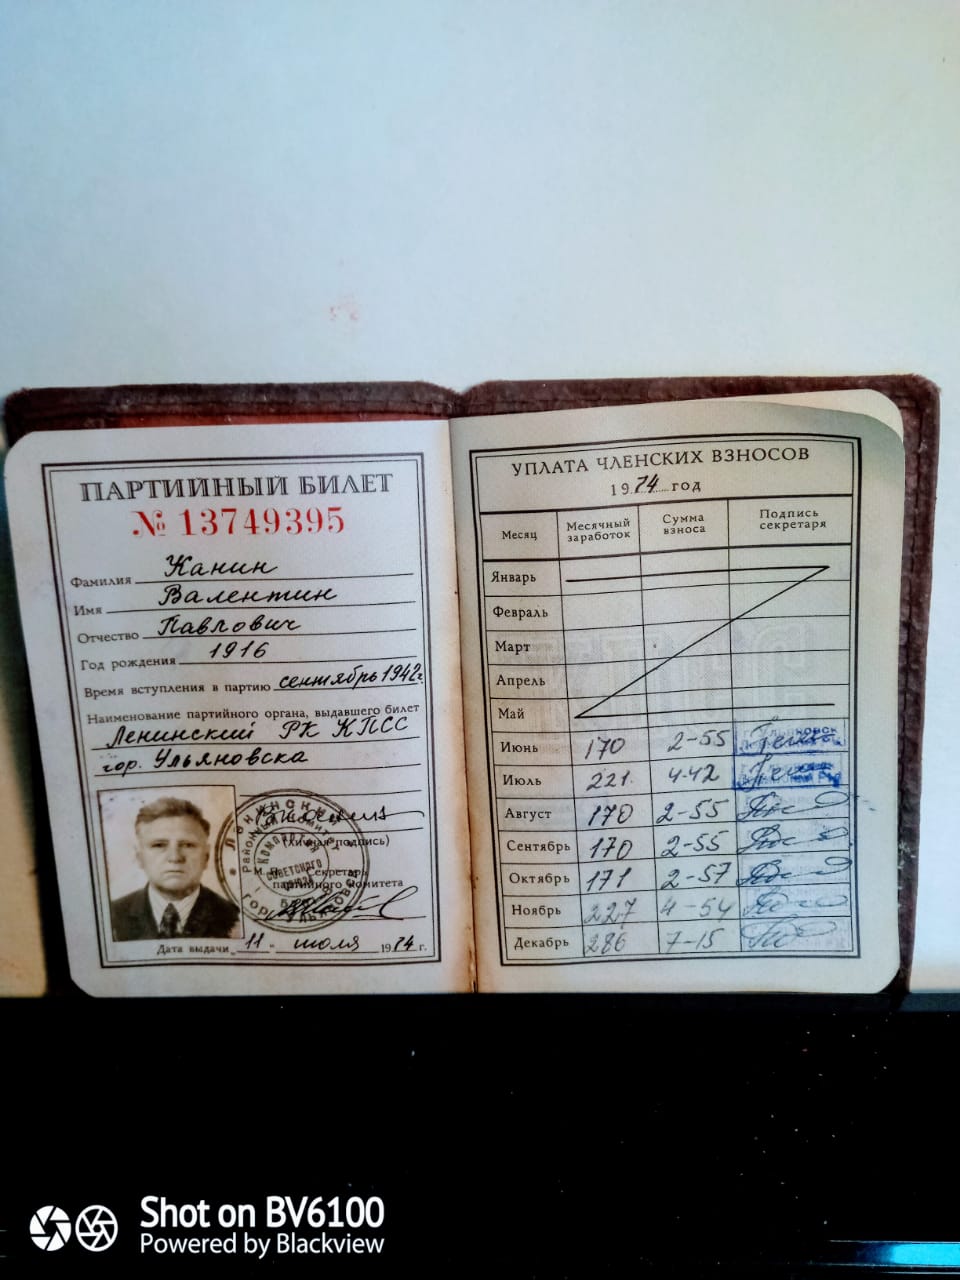 ПАРТИЙНЫЙ БИЛЕТ
№ 13749395
Фамилия Канин
Имя Валентин
Отчество Павлович
Год рождения 1916
Время вступления в партию сентябрь 1942г.
Наименование партийного органа, выдавшего билет
Ленинский РК КПСС
гор. Ульяновска
(личная подпись)
М. П. Секретарь
партийного комитета
Дата выдачи „11" июля 1974 г.
УПЛАТА ЧЛЕНСКИХ ВЗНОСОВ
1974 год
Месяц Месячный заработок Сумма взноса Подпись секретаря
Январь
Февраль
Март
Апрель
Май
Июнь 170 2-55
Июль 221. 4-42
Август 170 2-55
Сентябрь 170 2-55
Октябрь 171 2-57
Ноябрь 227 4-54
Декабрь 286 7-15
Shot on BV6100
Powered by Blackview